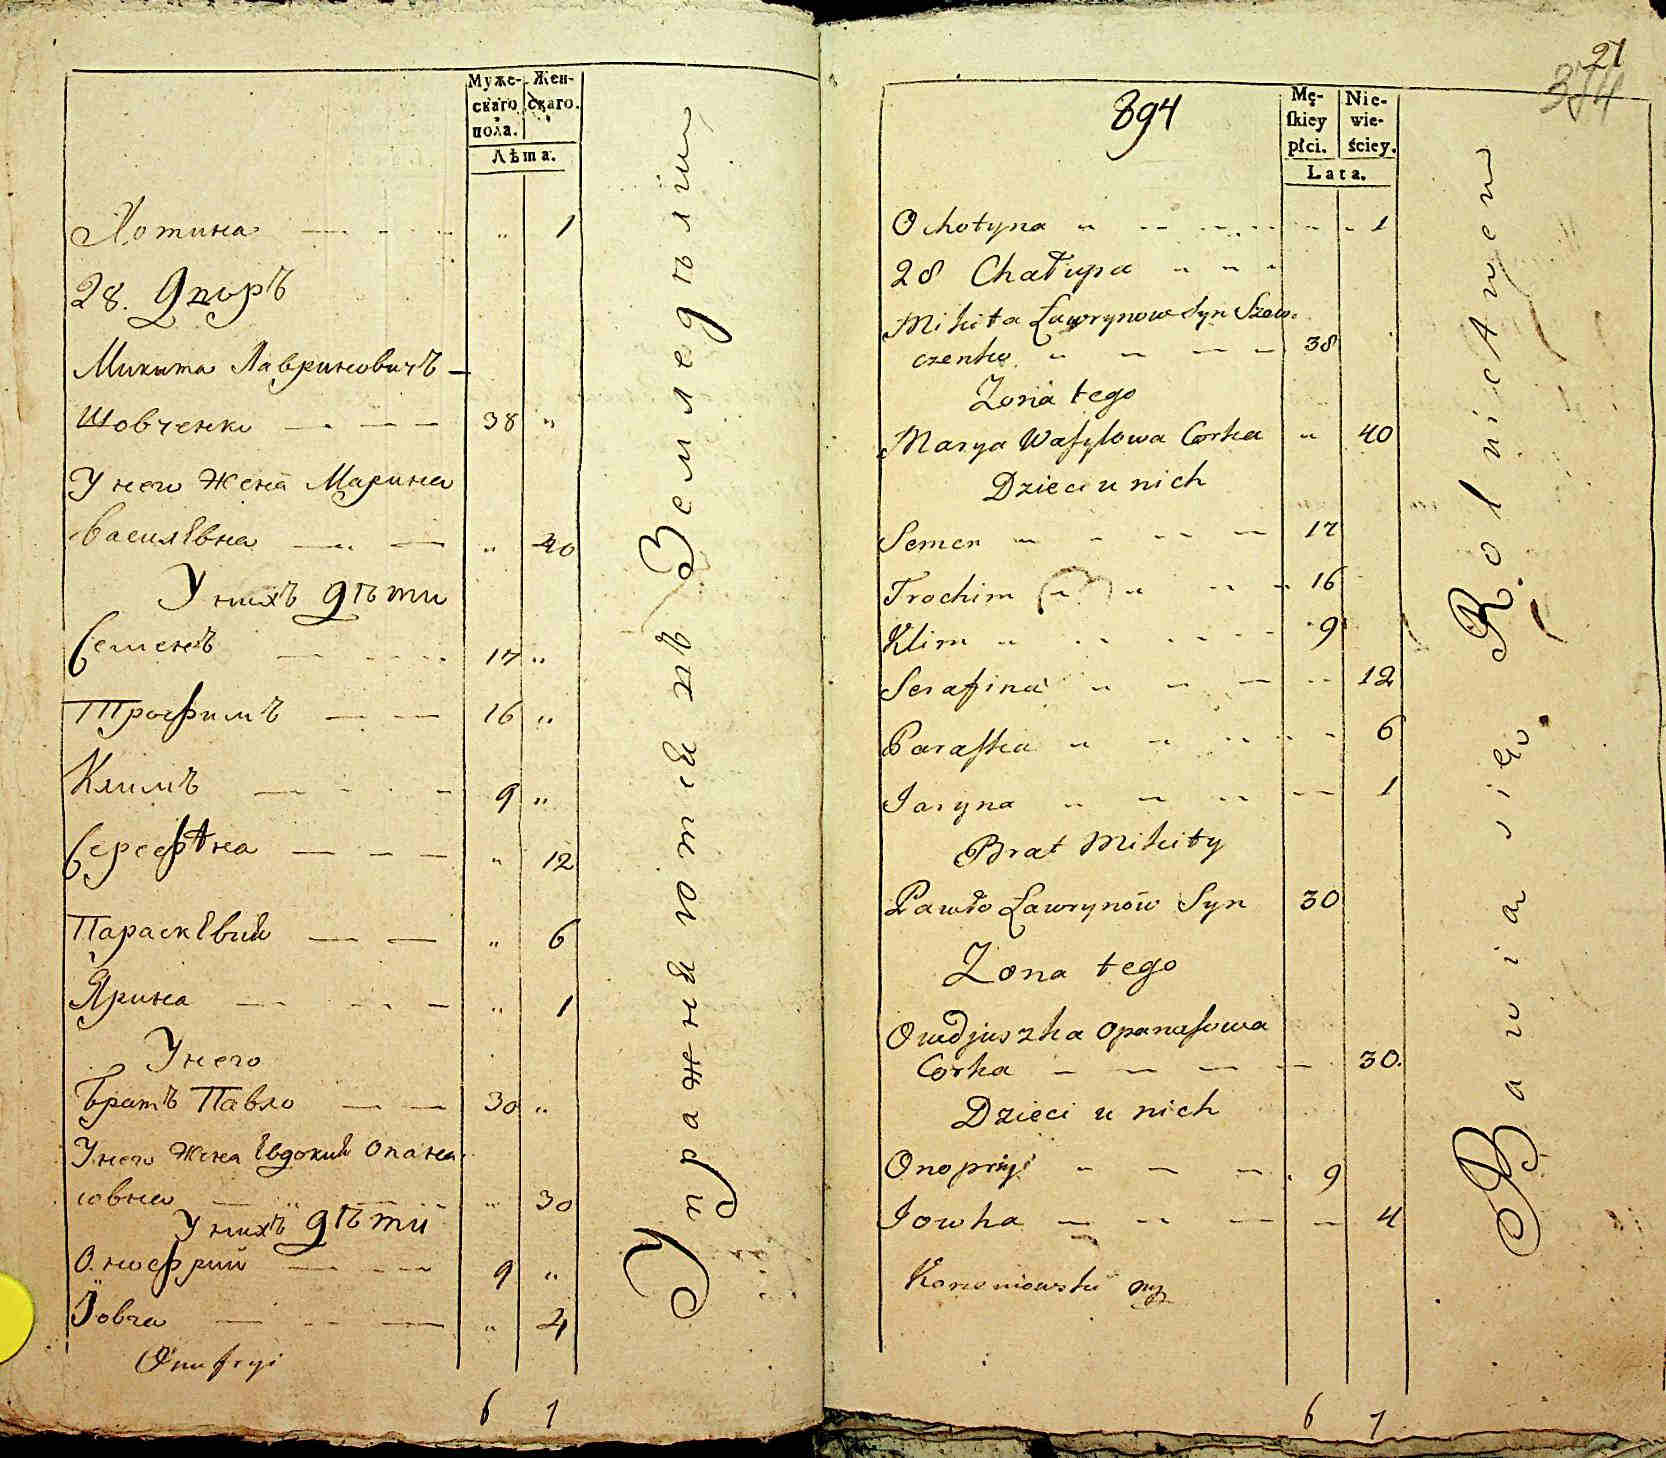 Муже-
скаго
пола.
Жен-
скаго.
Лѣта.
Хотина 1
28. Дворъ
Микита Лавриновичъ
Шовченко 38
У него Жена Марина
Василѣвна 40
У нихъ дѣти
Семенъ 17
Трофимъ 16
Климъ 9
Серефѣна 12
Параскѣвия 6
Ярина 1
У него
Братъ Павло 30
У него Жена Евдокия Опана
совна 30
У нихъ дѣти
Онофрий 9
Ювга 4
Onufryi
6 7
Упражняются въ Земледѣлїи
21
374
894
Mę-
ſkiey
płci.
Nie-
wie-
ściey.
Lata.
Ochotyna 1
28 Chałupa
Mikita Ławrynow Syn Szew-
czenko 38
Zona tego
Marya Waſylowa Corka 40
Dzieci u nich
Semen 17
Trochim 16
Klim 9
Serafina 12
Paraſka 6
Jaryna 1
Brat Mikity
Pawło Ławrynów Syn 30
Zona tego
Owdjuszka Opanaſowa
Corka 30.
Dzieci u nich
Onopryi 9
Jowha 4
6 7
Bawia się Rolnictwem